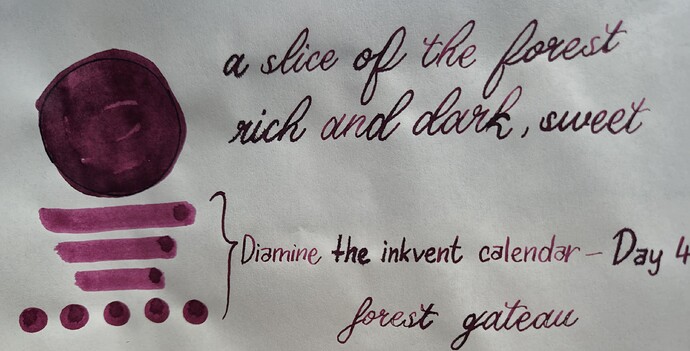 a slice of the forest
rich and dark, sweet
Diamine the inkvent calendar - Day 4
forest gateau